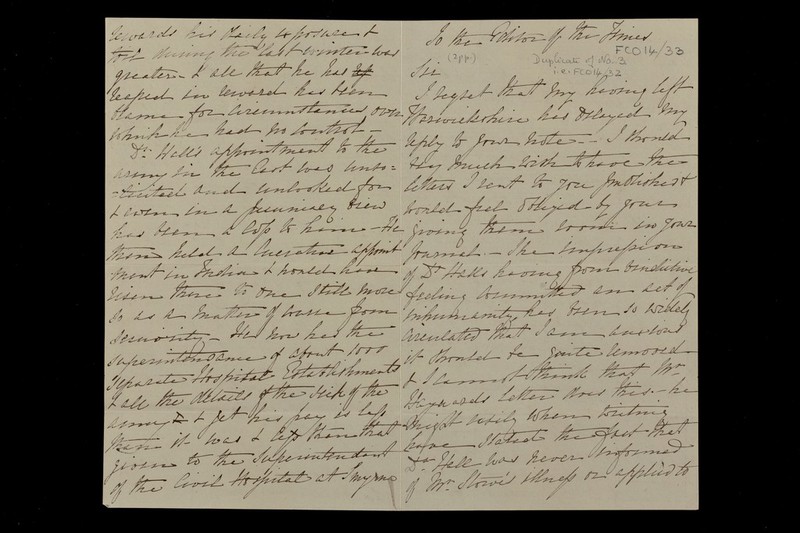 towards his daily exposure &
toil during the last winter was
greater & all that he has
reaped in reward has been
blame for circumstances over
which he had no control -
Dr. Hall's appointment to the
army in the East was unso=
=licited and unlooked for
& even in a pecuniary view
has been a loss to him - He
then held a lucrative appoint
ment in India & would have
risen there to one still more
so as a matter of course from
seniority - He now has the
superintendence of about 1000
separate Hospital Establishments
& all the details of the sick of the
army & yet his pay is less
than it was & less than that
given to the Superintendent
of the Civil Hospital at Smyrna
To the Editor of the Times
FCO14/33
(3pp.) Duplicate of No. 3
i.e. FCO14/32
Sir
I regret that my having left
Warwickshire has delayed my
reply to your note - I should
very much wish to have the
letters I sent to you published &
would feel obliged by your
giving them room in your
Journal. - The impression
of Dr. Hall's having from vindictive
feeling committed an act of
inhumanity has been so widely
circulated that I am anxious
it should be quite removed
& I cannot think that Mr.
letter does this - he
might easily when writing
have stated the fact that
Dr. Hall was never informed
of Mr. Stowe's illness or applied to